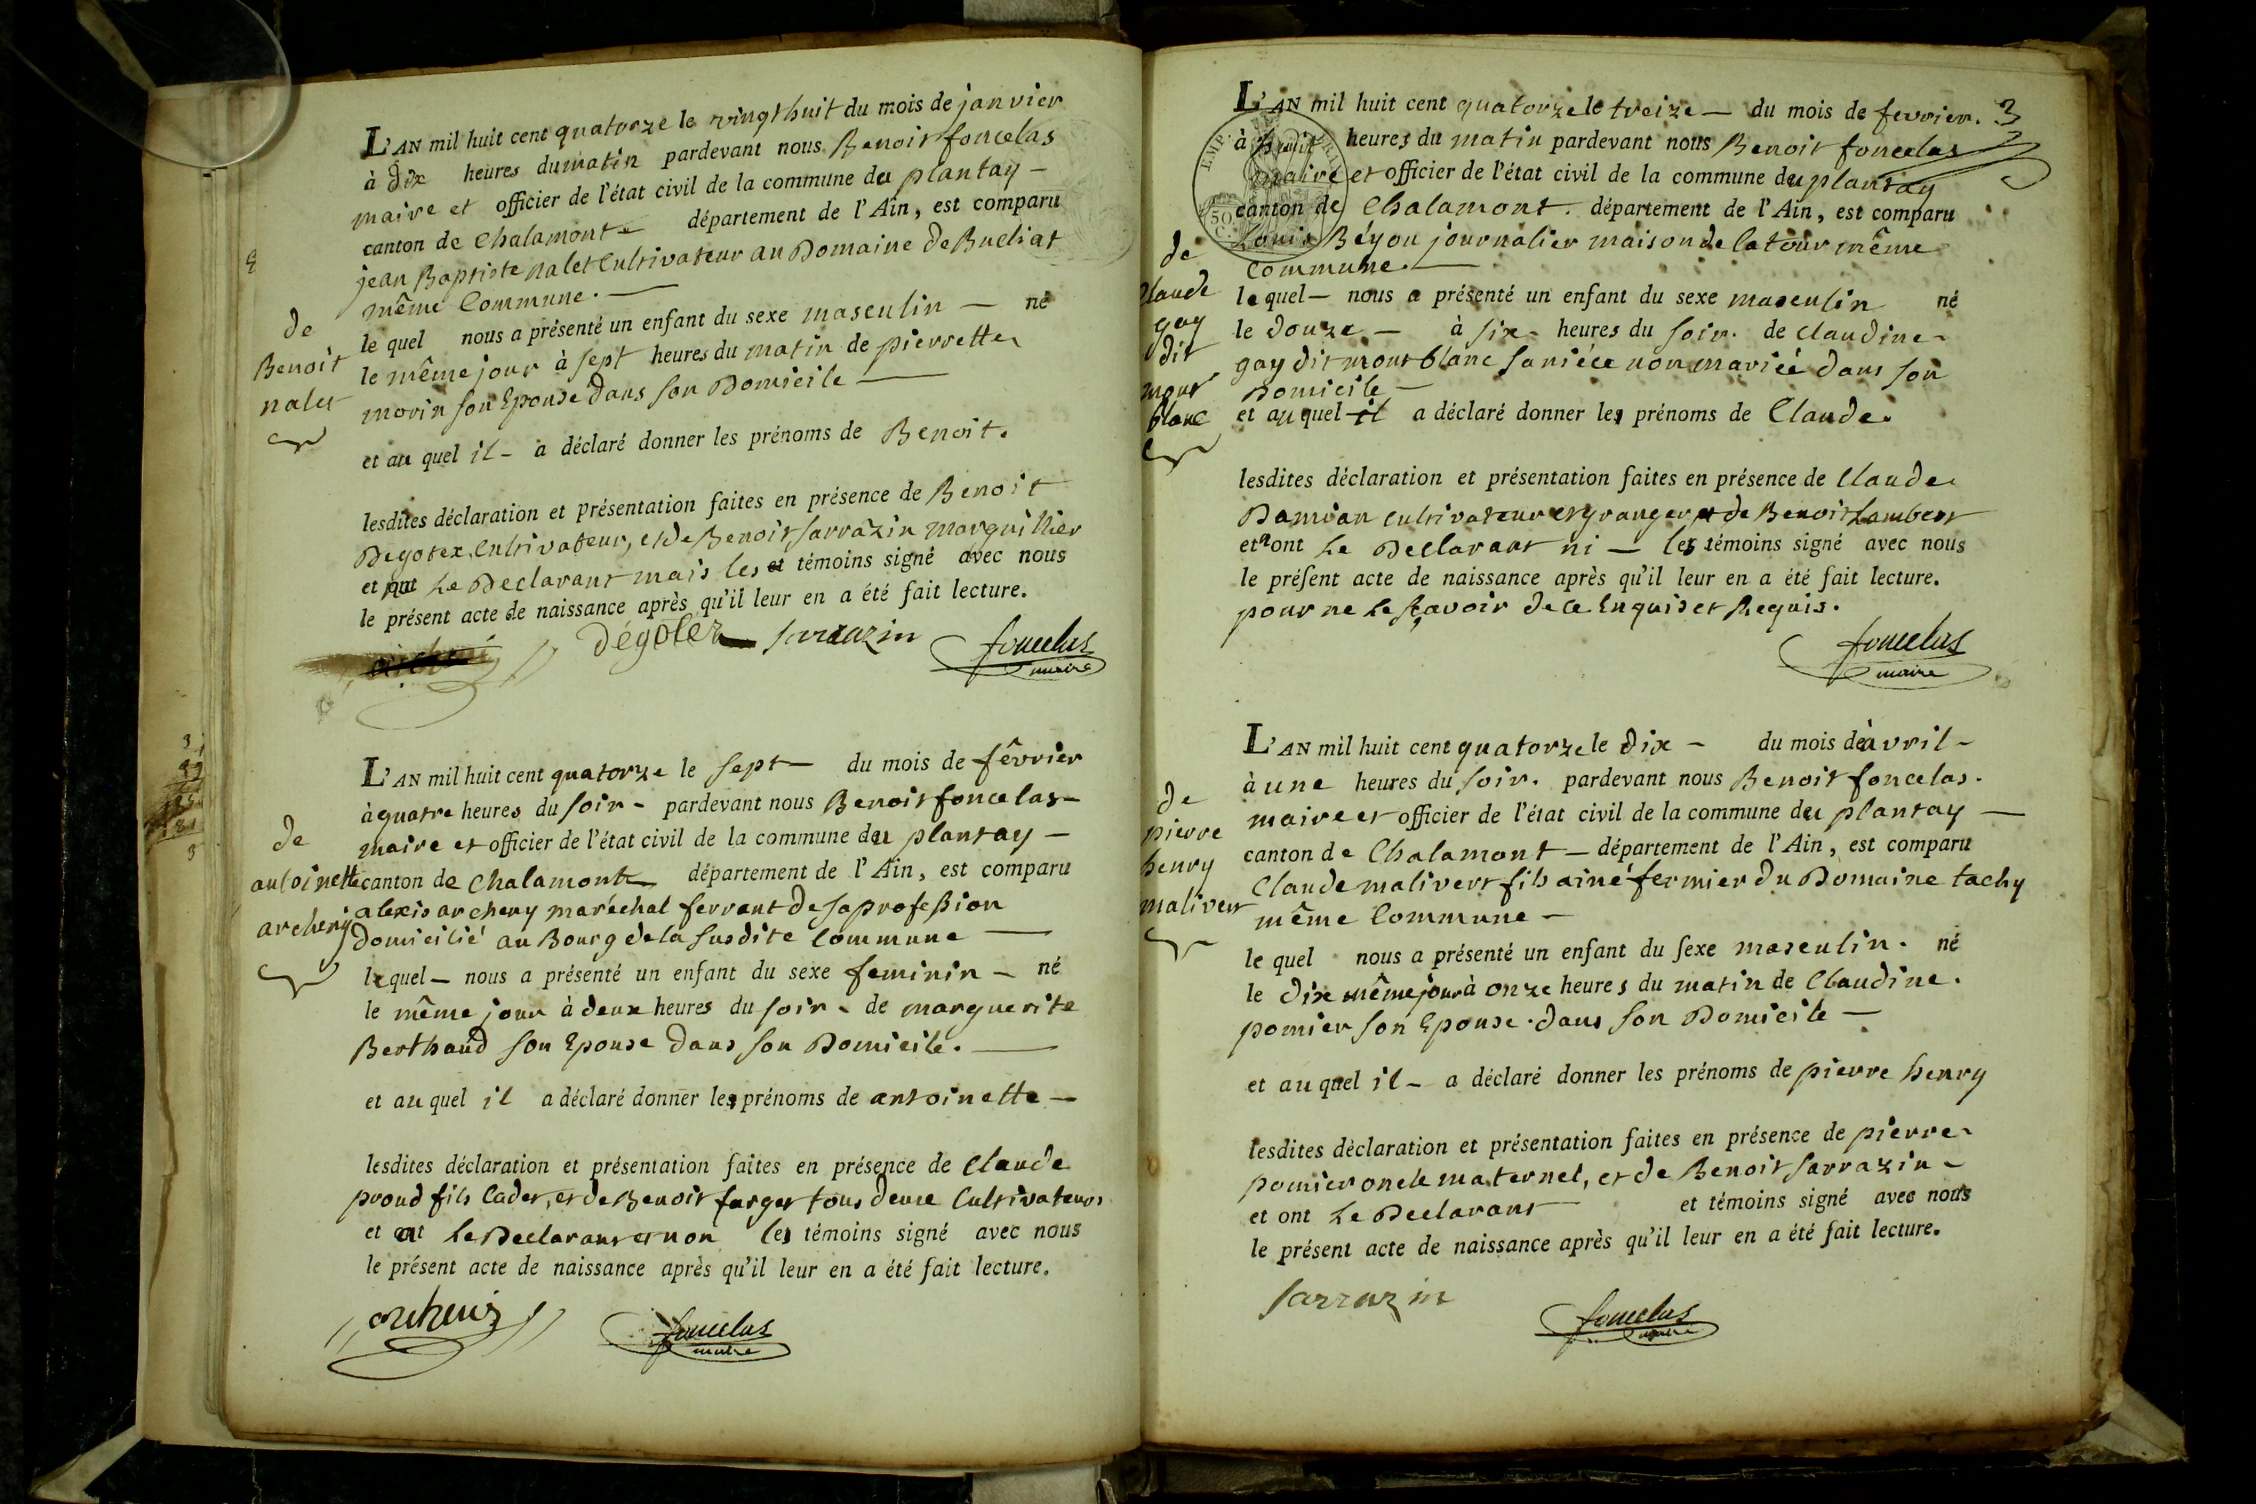 L'AN mil huit cent quatorze le vingt huit du mois de janvier
à Dix heures du matin pardevant nous Benoit foncelas
maire et officier de l'état civil de la commune du plantay —
canton de Chalamont département de l'Ain, est comparu
jean Baptiste nalet Cultivateur au Domaine de Bueliat
même Commune. —
le quel nous a présenté un enfant du sexe masculin — né
le même jour à sept heures du matin de pierrette
morin son Epouse dans son Domicile —
et au quel il - a déclaré donner les prénoms de Benoit.
lesdites déclaration et présentation faites en présence de Benoit
Degotex, Cultivateur, et de Benoit Sarrazin marguillier
et ont Le Declarant mais les témoins signé avec nous
le présent acte de naissance après qu'il leur en a été fait lecture.
dégotex sarrazin foncelas
maire
de
Benoit
nalet
L'AN mil huit cent quatorze le sept — du mois de février
à quatre heures du soir - pardevant nous Benoit foncelas -
maire et officier de l'état civil de la commune du plantay —
canton de Chalamont département de l'Ain, est comparu
alexis archeny maréchal ferrant de sa profession
domicilié au Bourg de la susdite Commune —
lequel — nous a présenté un enfant du sexe feminin — né
le même jour à deux heures du soir - de marguerite
Berthaud son Epouse dans son Domicile. —
et au quel il a déclaré donner les prénoms de antoinette —
lesdites déclaration et présentation faites en présence de Claude
proud fils Cadet, et de Benoit farget tous deux Cultivateurs
et ont Le Declarant et non les témoins signé avec nous
le présent acte de naissance après qu'il leur en a été fait lecture.
foncelas
maire
de
antoinette
archeny
3
L'AN mil huit cent quatorze le treize — du mois de fevrier.
à huit heures du matin pardevant nous Benoit foncelas
maire et officier de l'état civil de la commune du plantay
canton de Chalamont. département de l'Ain, est comparu
Louis Béyou journalier maison de la tour même
Commune. —
lequel — nous a présenté un enfant du sexe masculin né
le douze — à six - heures du soir. de claudine
gay dit mont blanc sa niéce non mariée dans son
Domicile —
et au quel il a déclaré donner les prénoms de Claude.
lesdites déclaration et présentation faites en présence de Claude
Damian cultivateur et granger et de Benoit Lambert
et ont Le Declarant ni — les témoins signé avec nous
le présent acte de naissance après qu'il leur en a été fait lecture.
pour ne le sçavoir de ce Enquis et Requis.
foncelas
maire
de
Claude
gay
dit
mont
blanc
EMP. FRAN.
50
C.
L'AN mil huit cent quatorze le Dix — du mois de avril -
à une heures du soir. pardevant nous Benoit foncelas.
maire et officier de l'état civil de la commune du plantay —
canton de Chalamont — département de l'Ain, est comparu
Claude malivert fils ainé fermier du Domaine tachy
même Commune —
le quel nous a présenté un enfant du sexe masculin. né
le dix même jour à onze heures du matin de Claudine.
pomier son Epouse . dans son Domicile —
et au quel il - a déclaré donner les prénoms de pierre henry
lesdites déclaration et présentation faites en présence de pierre
pomier oncle maternel, et de Benoit sarrazin -
et ont Le Declarant et témoins signé avec nous
le présent acte de naissance après qu'il leur en a été fait lecture.
sarrazin foncelas
maire
de
pierre
henry
malivert